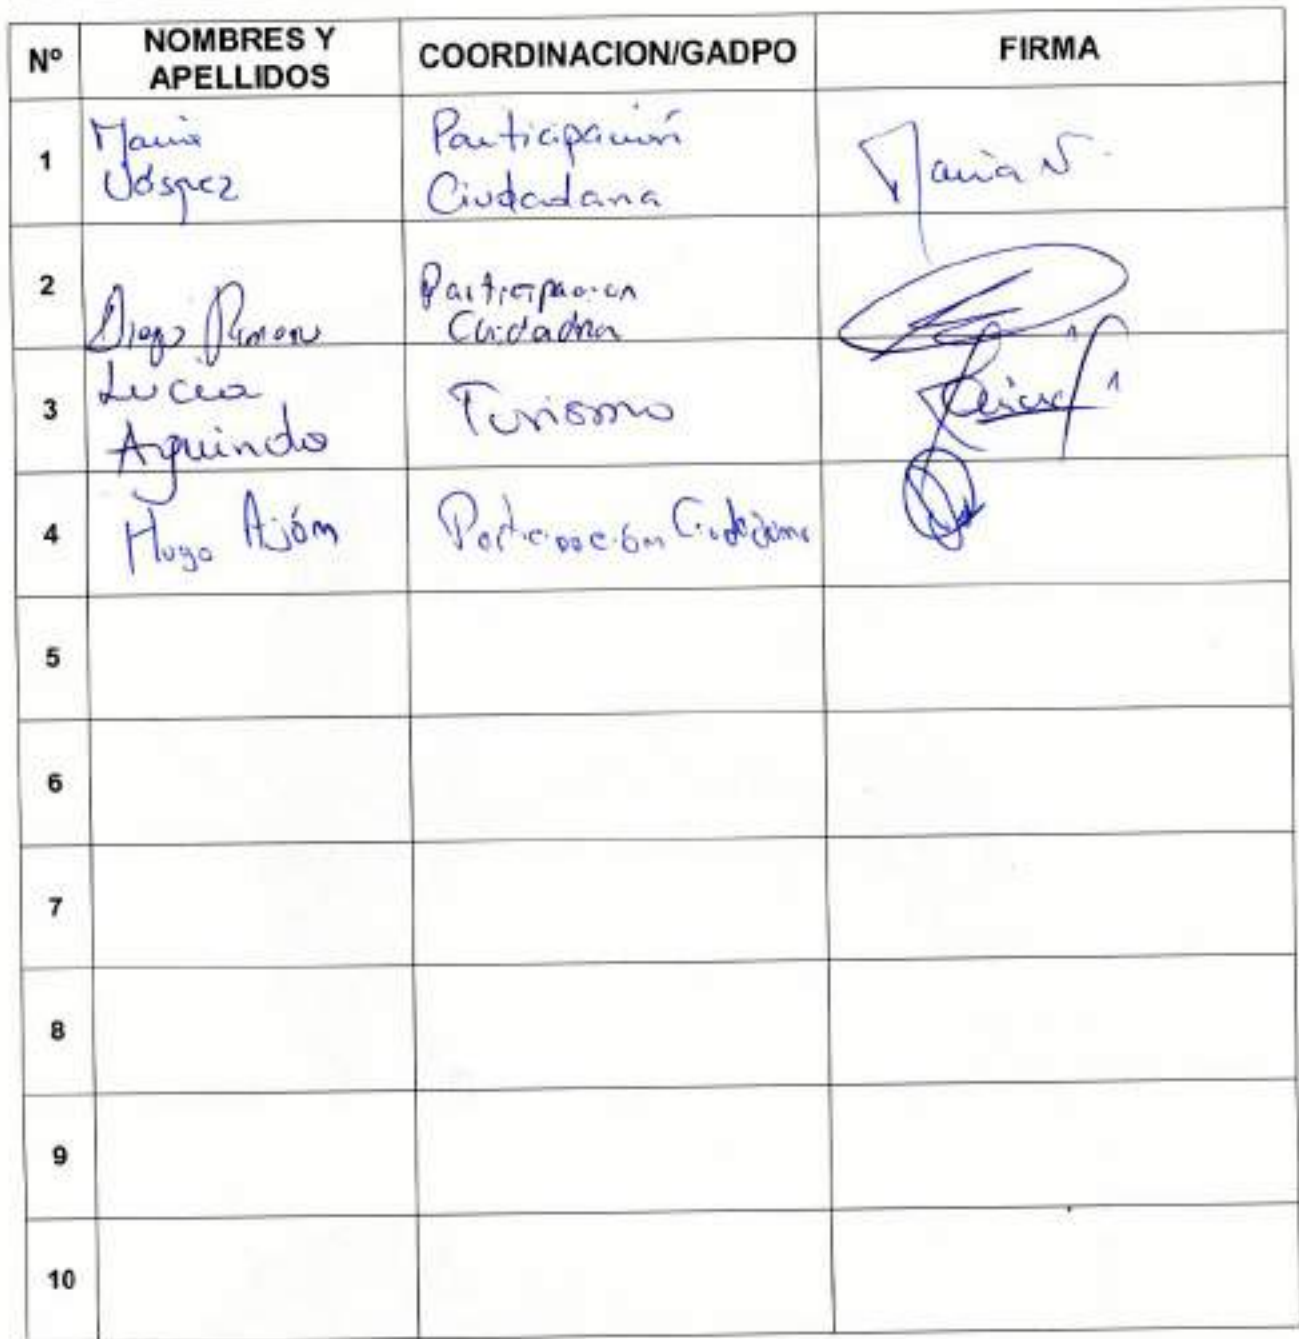 Nº NOMBRES Y APELLIDOS COORDINACION/GADPO FIRMA
1 Maria Vásquez Participación Ciudadana Maria V.
2 Diego Participacion Ciudadana
3 Lucia Aguinda Turismo
4 Hugo Ajón Participación Ciudadana
5
6
7
8
9
10